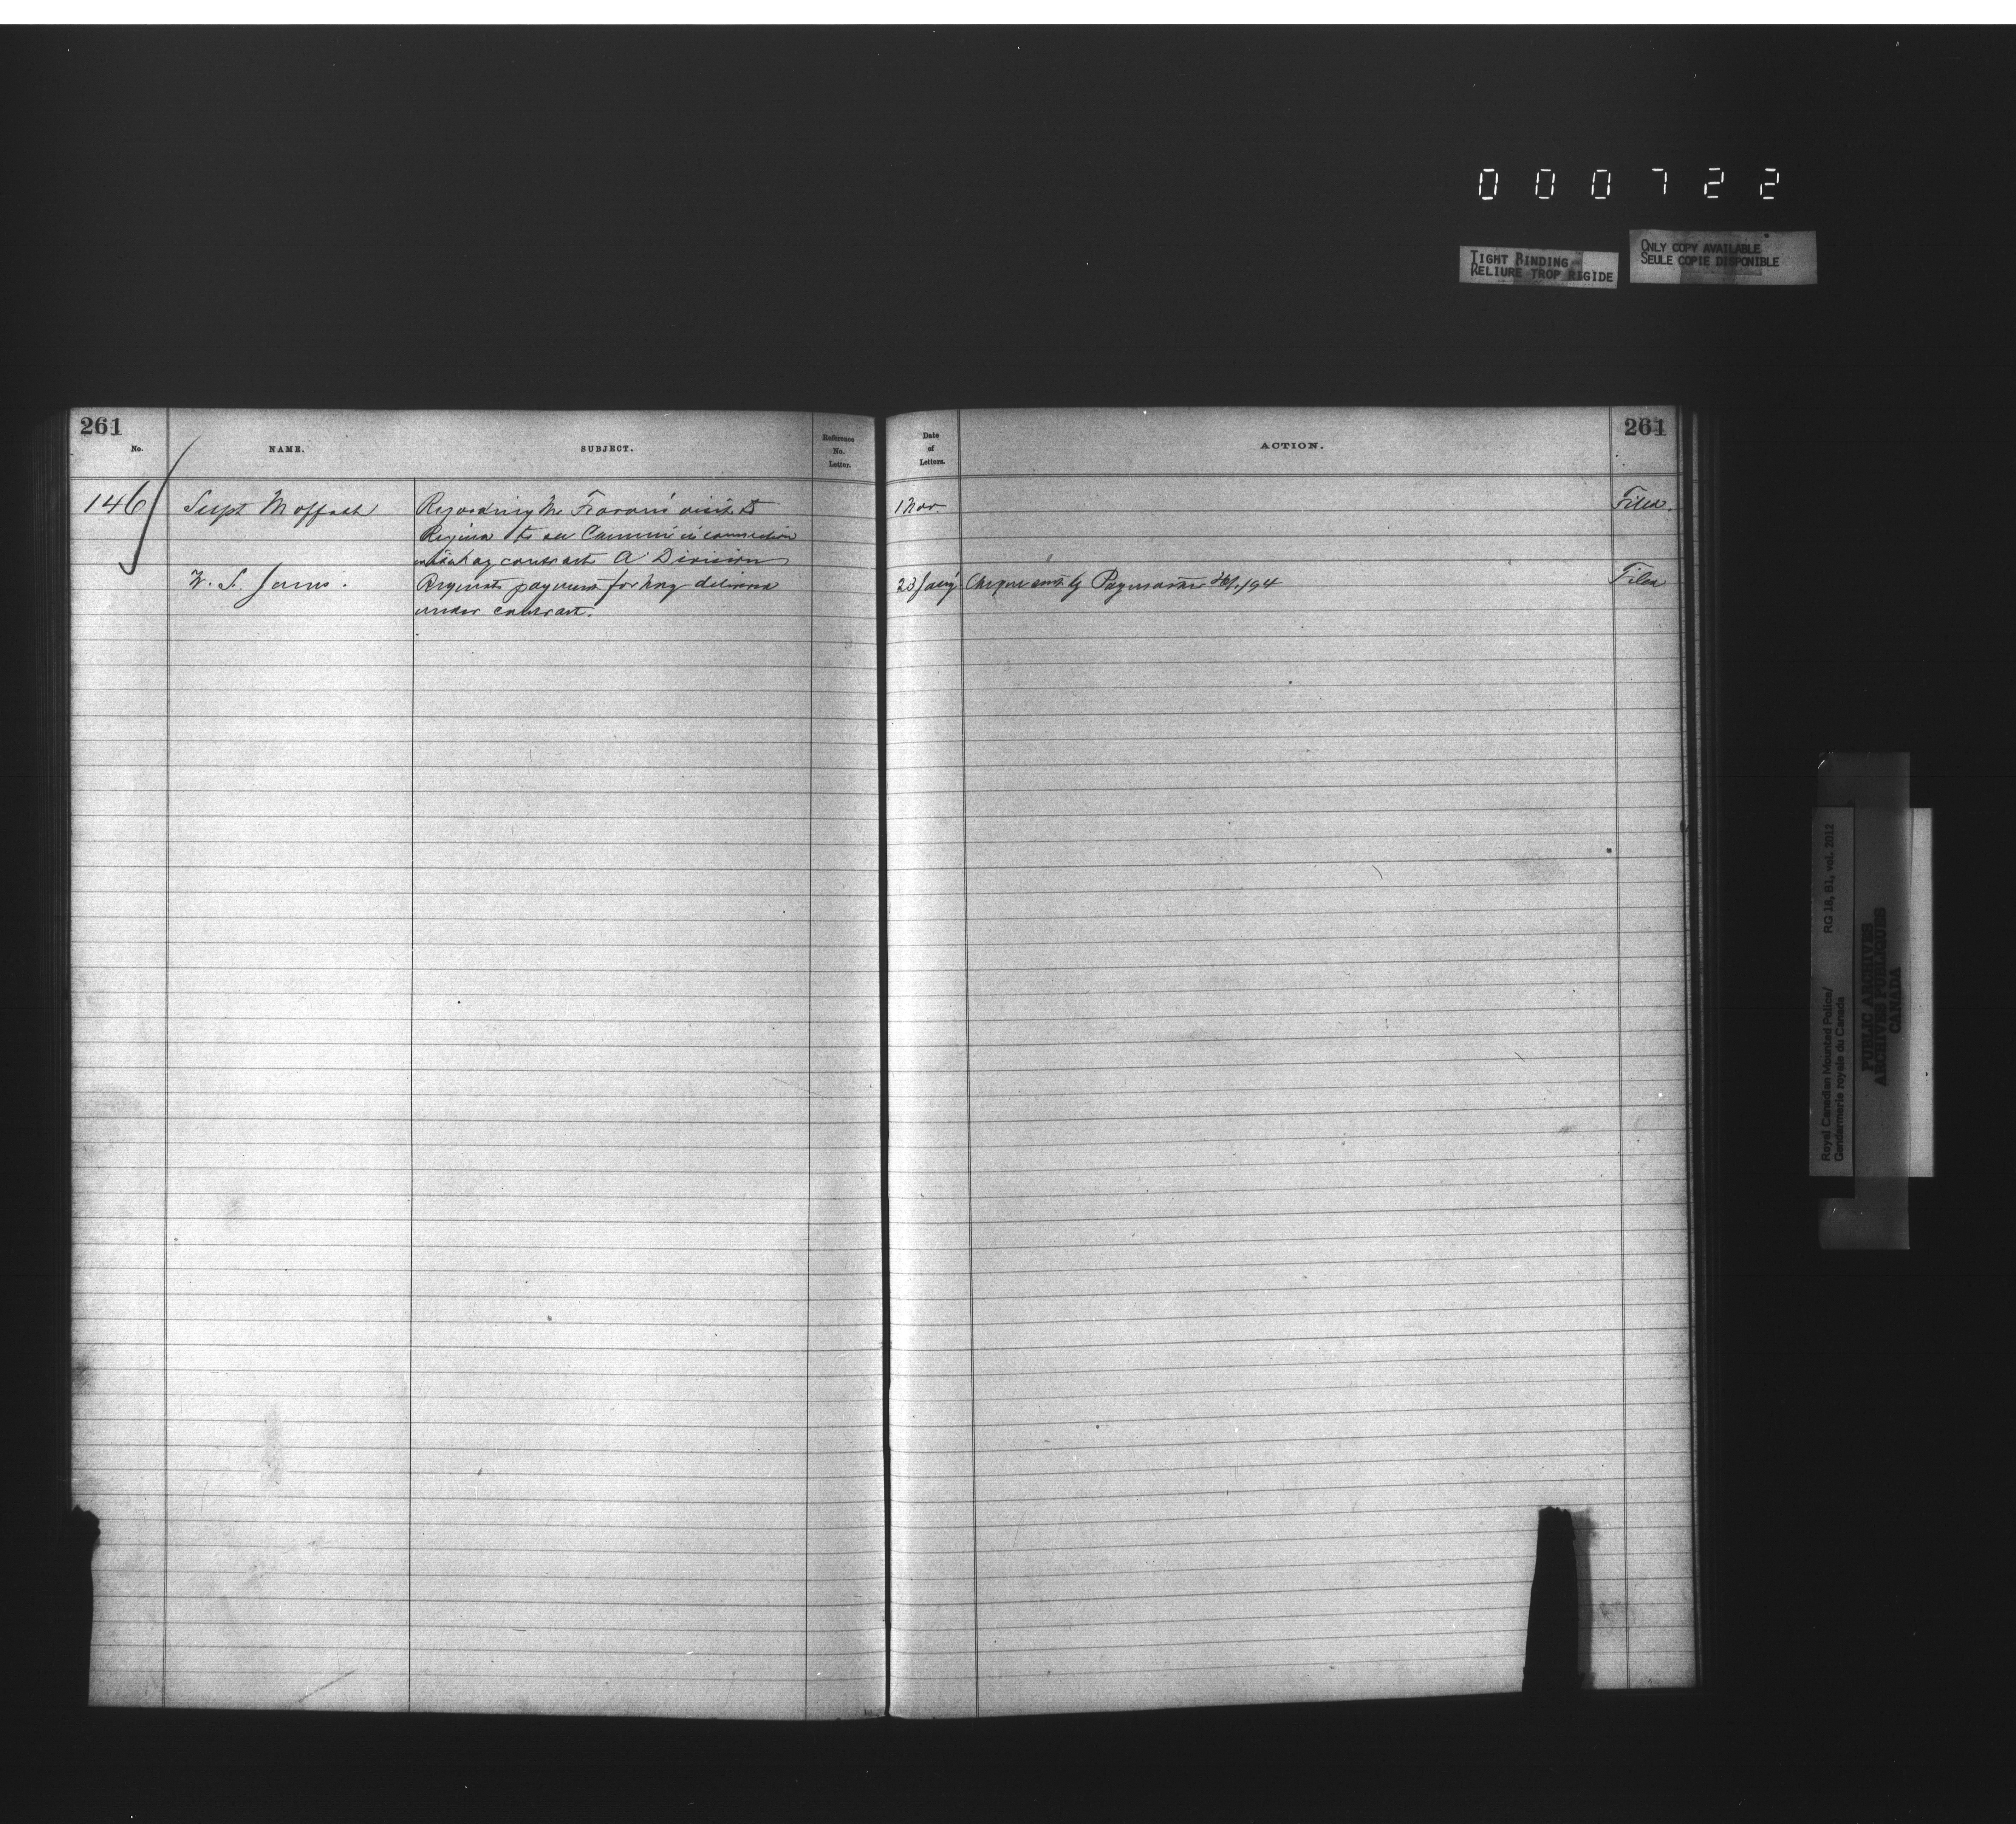 000722
TIGHT BINDING
RELIURE TROP RIGIDE
ONLY COPY AVAILABLE
SEULE COPIE DISPONIBLE
261
No.
NAME.
SUBJECT.
Reference
No.
Letter.
Date
of
Letters.
ACTION.
261
146 Supt Moffatt Regarding Mr visit to 1 Nov. Filed.
Regina to see Commr in connection
with hay contract A Division
W. S. James. Requests payment for hay delivered 23 Cheque sent by /94 Filed
under contract.
Royal Canadian Mounted Police/
Gendarmerie royale du Canada
RG 18, B1, vol. 2012
PUBLIC ARCHIVES
ARCHIVES PUBLIQUES
CANADA